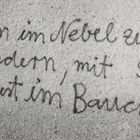 n im Nebel zu
dern, mit
st im Bauch